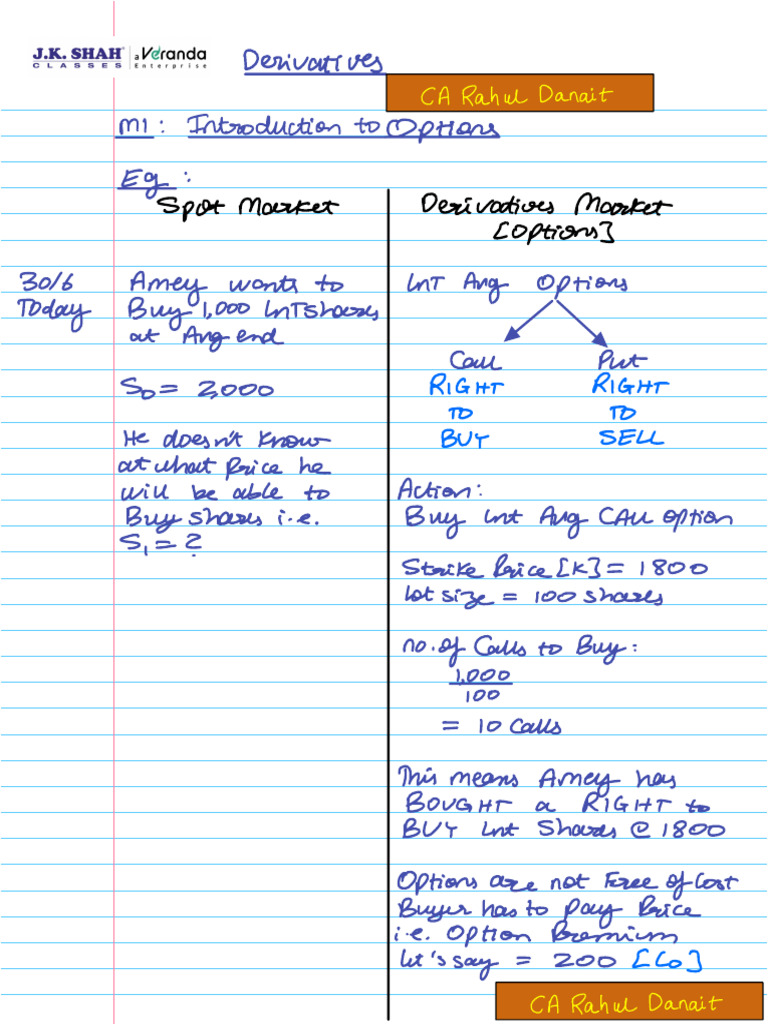 J.K. SHAH®
CLASSES
a Veranda
Enterprise
Derivatives
CA Rahul Danait
M1: Introduction to Options
Eg:
Spot Market
Derivatives Market
[Options]
30/6
Today
Amey wants to
Buy 1,000 LnT shares
at Aug end
S0 = 2,000
He doesn't know
at what Price he
will be able to
Buy shares i.e.
S1 = ?
LnT Aug Options
Call Put
RIGHT RIGHT
TO TO
BUY SELL
Action:
Buy LnT Aug CALL option
Strike Price [K] = 1800
Lot size = 100 shares
no. of Calls to Buy:
1,000
100
= 10 Calls
This means Amey has
BOUGHT a RIGHT to
BUY LnT Shares @ 1800
Options are not Free of Cost
Buyer has to pay Price
i.e. Option Premium
Let's say = 200 [C0]
CA Rahul Danait